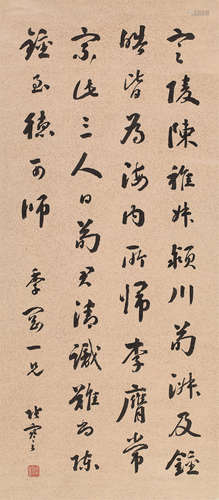 定陵陈稚叔颍川荀淑及鍾
皓皆為海内所歸李膺常
宗此三人曰荀君清識難尚陳
鍾至德可師
季寅一兄